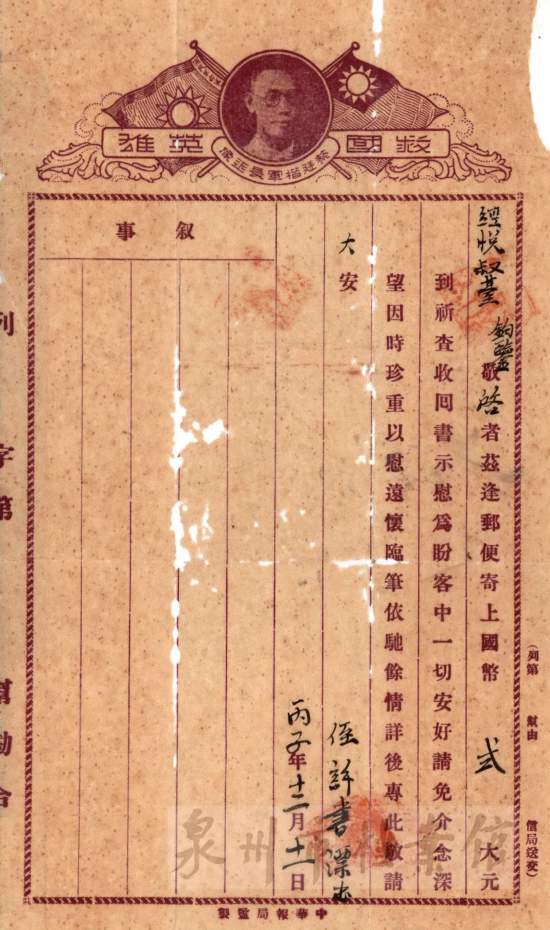 救國英雄
蔡廷楷軍長造像
經悅叔臺 鈞鑒敬啓者茲逢郵便寄上國幣 弍 大元
到祈查收回書示慰爲盼客中一切安好請免介念深
望因時珍重以慰遠懷臨筆依馳餘情詳後專此敬請
大安
侄許書
丙子年十二月十一日
叙事
(列第 幫由 信局送交)
列 字第 幫
中華報局監製
泉州市檔案